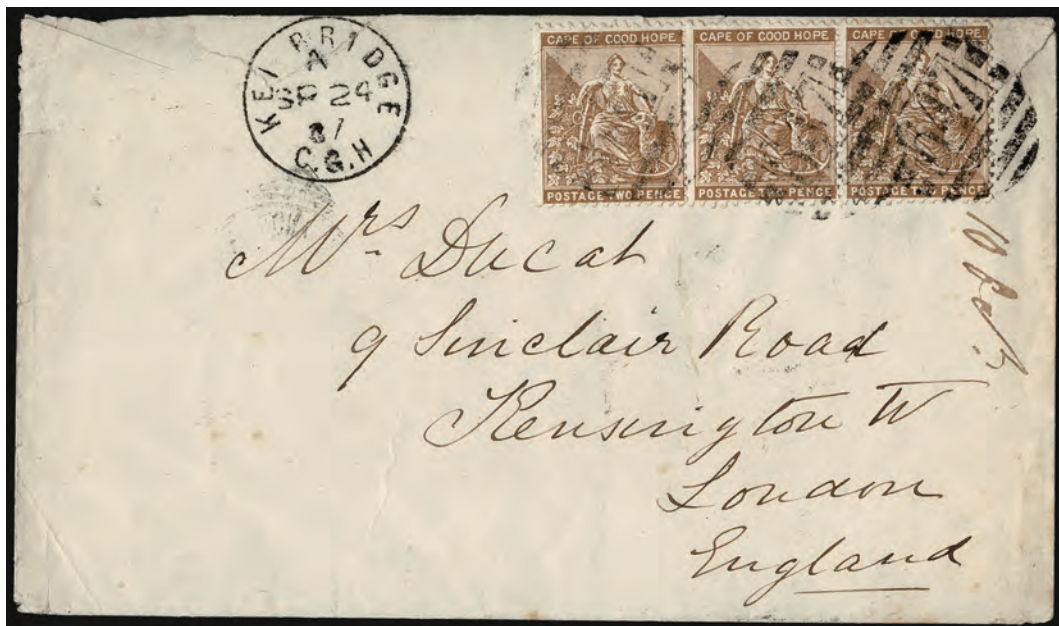 KEI BRIDGE
A
SP 24
87
C.G.H
CAPE OF GOOD HOPE CAPE OF GOOD HOPE CAPE OF GOOD HOPE
POSTAGE TWO PENCE POSTAGE TWO PENCE POSTAGE TWO PENCE
Mrs Ducat
9 Sinclair Road
Kensington W
London
England
10